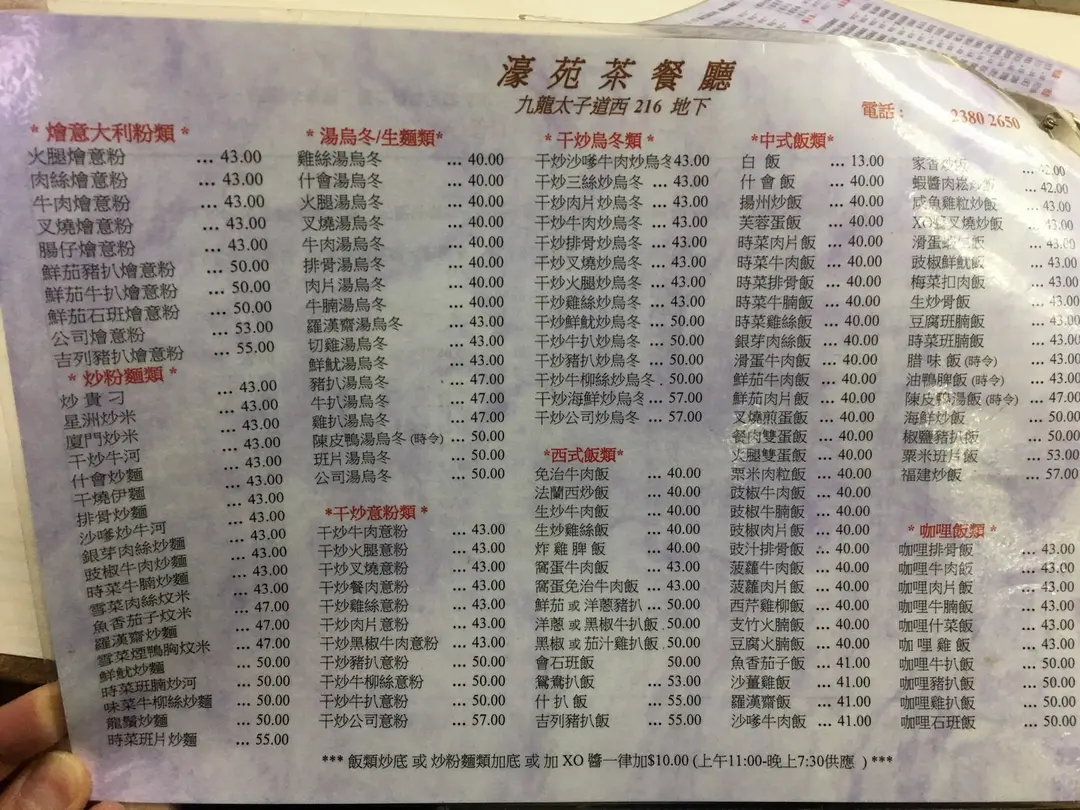 濠苑茶餐廳
九龍太子道西 216 地下
電話： 2380 2650
* 燴意大利粉類 *
火腿燴意粉 ... 43.00
肉絲燴意粉 ... 43.00
牛肉燴意粉 ... 43.00
叉燒燴意粉 ... 43.00
腸仔燴意粉 ... 43.00
鮮茄豬扒燴意粉 ... 50.00
鮮茄牛扒燴意粉 ... 50.00
鮮茄石班燴意粉 ... 50.00
公司燴意粉 ... 53.00
吉列豬扒燴意粉 ... 55.00
* 炒粉麵類 *
炒貴刁 ... 43.00
星洲炒米 ... 43.00
廈門炒米 ... 43.00
干炒牛河 ... 43.00
什會炒麵 ... 43.00
干燒伊麵 ... 43.00
排骨炒麵 ... 43.00
沙嗲炒牛河 ... 43.00
銀芽肉絲炒麵 ... 43.00
豉椒牛肉炒麵 ... 43.00
時菜牛腩炒麵 ... 43.00
雪菜肉絲炆米 ... 43.00
魚香茄子炆米 ... 47.00
羅漢齋炒麵 ... 47.00
雪菜煙鴨胸炆米 ... 47.00
鮮魷炒麵 ... 50.00
時菜班腩炒河 ... 50.00
味菜牛柳絲炒麵 ... 50.00
龍鬚炒麵 ... 50.00
時菜班片炒麵 ... 55.00
* 湯烏冬/生麵類*
雞絲湯烏冬 ... 40.00
什會湯烏冬 ... 40.00
火腿湯烏冬 ... 40.00
叉燒湯烏冬 ... 40.00
牛肉湯烏冬 ... 40.00
排骨湯烏冬 ... 40.00
肉片湯烏冬 ... 40.00
牛腩湯烏冬 ... 40.00
羅漢齋湯烏冬 ... 43.00
切雞湯烏冬 ... 43.00
鮮魷湯烏冬 ... 43.00
豬扒湯烏冬 ... 47.00
牛扒湯烏冬 ... 47.00
雞扒湯烏冬 ... 47.00
陳皮鴨湯烏冬 (時令) ... 50.00
班片湯烏冬 ... 50.00
公司湯烏冬 ... 50.00
*干炒意粉類 *
干炒牛肉意粉 ... 43.00
干炒火腿意粉 ... 43.00
干炒叉燒意粉 ... 43.00
干炒餐肉意粉 ... 43.00
干炒雞絲意粉 ... 43.00
干炒肉片意粉 ... 43.00
干炒黑椒牛肉意粉 ... 43.00
干炒豬扒意粉 ... 50.00
干炒牛柳絲意粉 ... 50.00
干炒牛扒意粉 ... 50.00
干炒公司意粉 ... 57.00
*干炒烏冬類 *
干炒沙嗲牛肉炒烏冬43.00
干炒三絲炒烏冬 ... 43.00
干炒肉片炒烏冬 ... 43.00
干炒牛肉炒烏冬 ... 43.00
干炒排骨炒烏冬 ... 43.00
干炒叉燒炒烏冬 ... 43.00
干炒火腿炒烏冬 ... 43.00
干炒雞絲炒烏冬 ... 43.00
干炒鮮魷炒烏冬 ... 50.00
干炒牛扒炒烏冬 ... 50.00
干炒豬扒炒烏冬 ... 50.00
干炒牛柳絲炒烏冬 . 50.00
干炒海鮮炒烏冬 ... 57.00
干炒公司炒烏冬 ... 57.00
*西式飯類*
免治牛肉飯 ... 40.00
法蘭西炒飯 ... 40.00
生炒牛肉飯 ... 40.00
生炒雞絲飯 ... 40.00
炸雞脾飯 ... 40.00
窩蛋牛肉飯 ... 43.00
窩蛋免治牛肉飯 ... 43.00
鮮茄 或 洋蔥豬扒 ... 50.00
洋蔥 或 黑椒牛扒飯 . 50.00
黑椒 或 茄汁雞扒飯 . 50.00
會石班飯 50.00
鴛鴦扒飯 ... 53.00
什扒飯 ... 55.00
吉列豬扒飯 ... 55.00
*中式飯類*
白 飯 ... 13.00
什會飯 ... 40.00
揚州炒飯 ... 40.00
芙蓉蛋飯 ... 40.00
時菜肉片飯 ... 40.00
時菜牛肉飯 ... 40.00
時菜排骨飯 ... 40.00
時菜牛腩飯 ... 40.00
時菜雞絲飯 ... 40.00
銀芽肉絲飯 ... 40.00
滑蛋牛肉飯 ... 40.00
鮮茄牛肉飯 ... 40.00
鮮茄肉片飯 ... 40.00
叉燒煎蛋飯 ... 40.00
餐肉雙蛋飯 ... 40.00
火腿雙蛋飯 ... 40.00
粟米肉粒飯 ... 40.00
豉椒牛肉飯 ... 40.00
豉椒牛腩飯 ... 40.00
豉椒肉片飯 ... 40.00
豉汁排骨飯 ... 40.00
菠蘿牛肉飯 ... 40.00
菠蘿肉片飯 ... 40.00
西芹雞柳飯 ... 40.00
支竹火腩飯 ... 40.00
豆腐火腩飯 ... 40.00
魚香茄子飯 ... 41.00
沙薑雞飯 ... 41.00
羅漢齋飯 ... 41.00
沙嗲牛肉飯 ... 41.00
家香炒飯 ... 42.00
蝦醬肉崧炒飯 ... 42.00
咸魚雞粒炒飯 ... 43.00
XO醬叉燒炒飯 ... 43.00
滑蛋蝦仁飯 ... 43.00
豉椒鮮魷飯 ... 43.00
梅菜扣肉飯 ... 43.00
生炒骨飯 ... 43.00
豆腐班腩飯 ... 43.00
時菜班腩飯 ... 43.00
腊味飯 (時令) ... 43.00
油鴨脾飯 (時令) ... 43.00
陳皮鴨湯飯 (時令) ... 47.00
海鮮炒飯 ... 50.00
椒鹽豬扒飯 ... 50.00
粟米班片飯 ... 53.00
福建炒飯 ... 57.00
* 咖哩飯類 *
咖哩排骨飯 ... 43.00
咖哩牛肉飯 ... 43.00
咖哩肉片飯 ... 43.00
咖哩牛腩飯 ... 43.00
咖哩什菜飯 ... 43.00
咖哩雞飯 ... 43.00
咖哩牛扒飯 ... 50.00
咖哩豬扒飯 ... 50.00
咖哩雞扒飯 ... 50.00
咖哩石班飯 ... 50.00
*** 飯類炒底 或 炒粉麵類加底 或 加 XO 醬一律加$10.00 (上午11:00-晚上7:30供應 ) ***